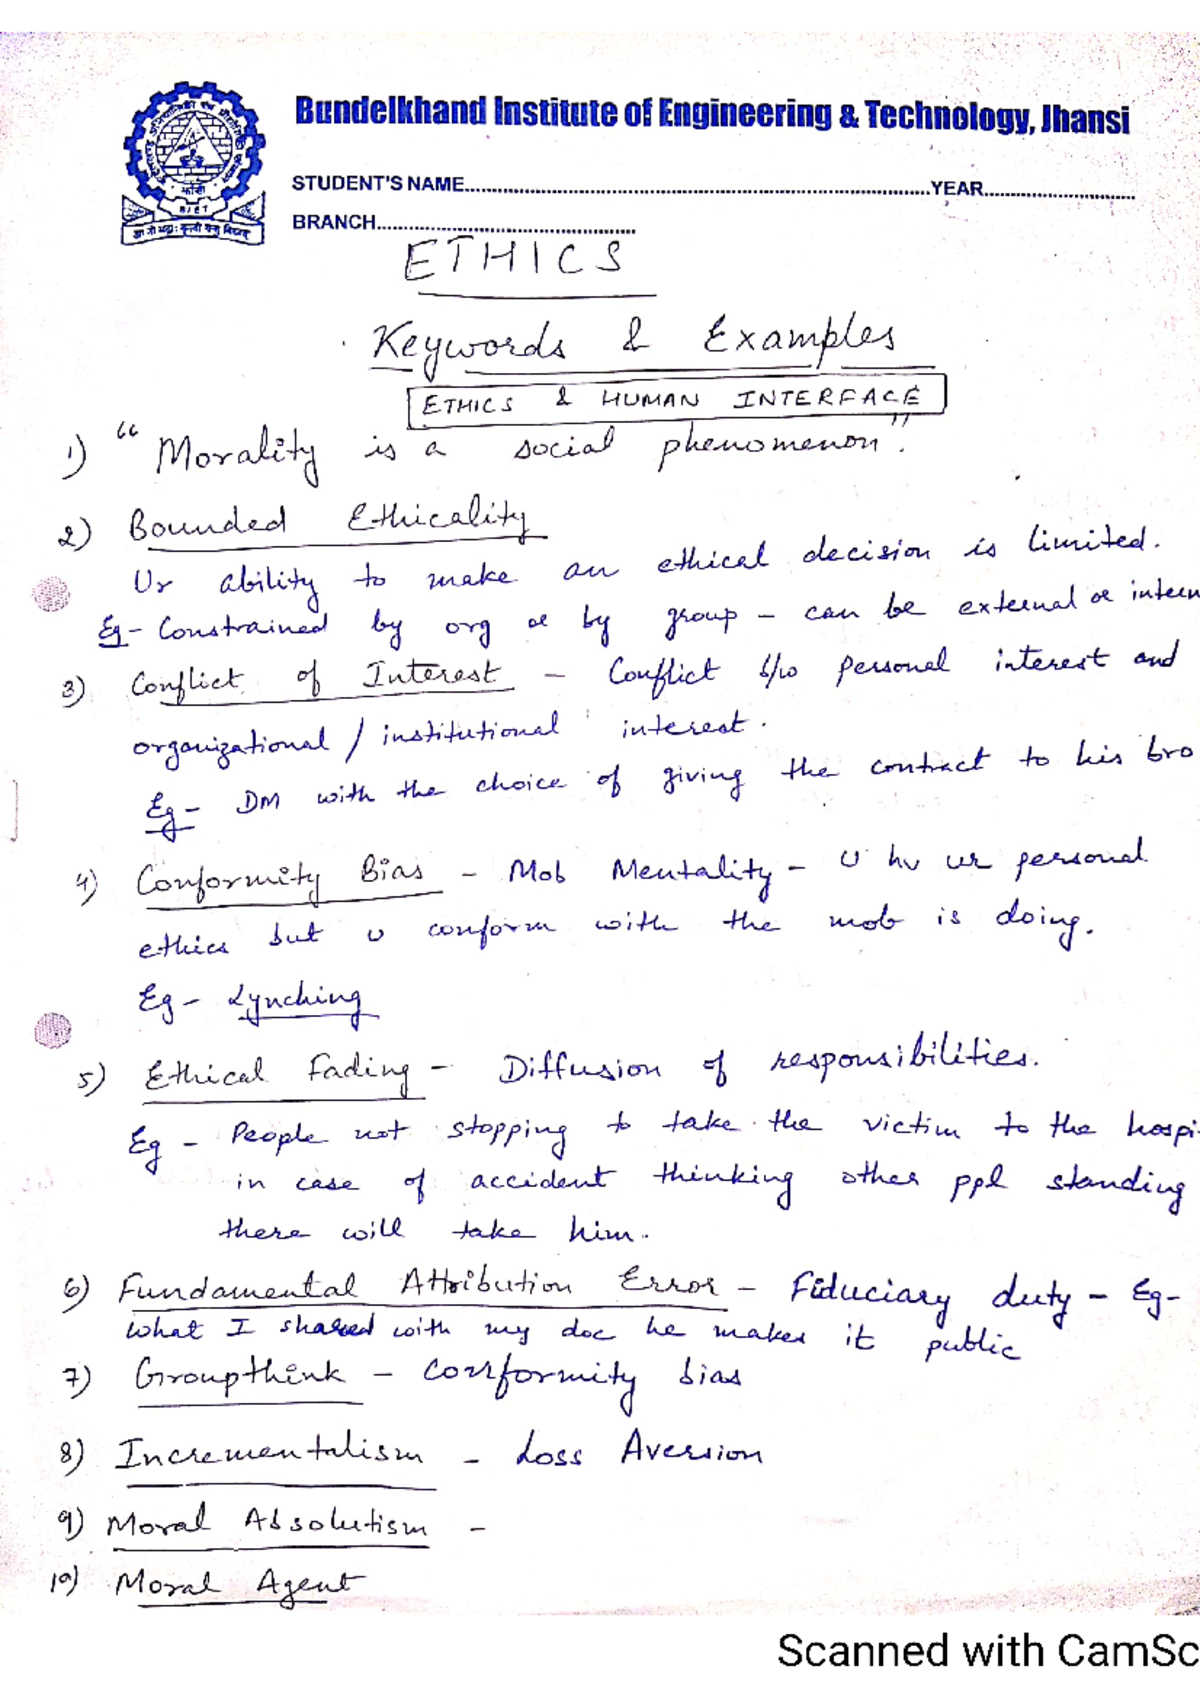 Bundelkhand Institute of Engineering & Technology, Jhansi
STUDENT'S NAME............YEAR............
BRANCH............
BIET
ETHICS
Keywords & Examples
ETHICS & HUMAN INTERFACE
1) "Morality is a social phenomenon".
2) Bounded Ethicality
Ur ability to make an ethical decision is limited.
Eg- Constrained by org or by group - can be external or intern
3) Conflict of Interest - Conflict b/w personal interest and
organizational / institutional interest.
Eg- DM with the choice of giving the contract to his bro
4) Conformity Bias - Mob Mentality - U hv ur personal
ethics but u conform with the mob is doing.
Eg- Lynching
5) Ethical Fading - Diffusion of responsibilities.
Eg - People not stopping to take the victim to the hospi
in case of accident thinking other ppl standing
there will take him.
6) Fundamental Attribution Error - Fiduciary duty - Eg-
What I shared with my doc he makes it public
7) Groupthink - Conformity bias
8) Incrementalism - Loss Aversion
9) Moral Absolutism -
10) Moral Agent
Scanned with CamSc